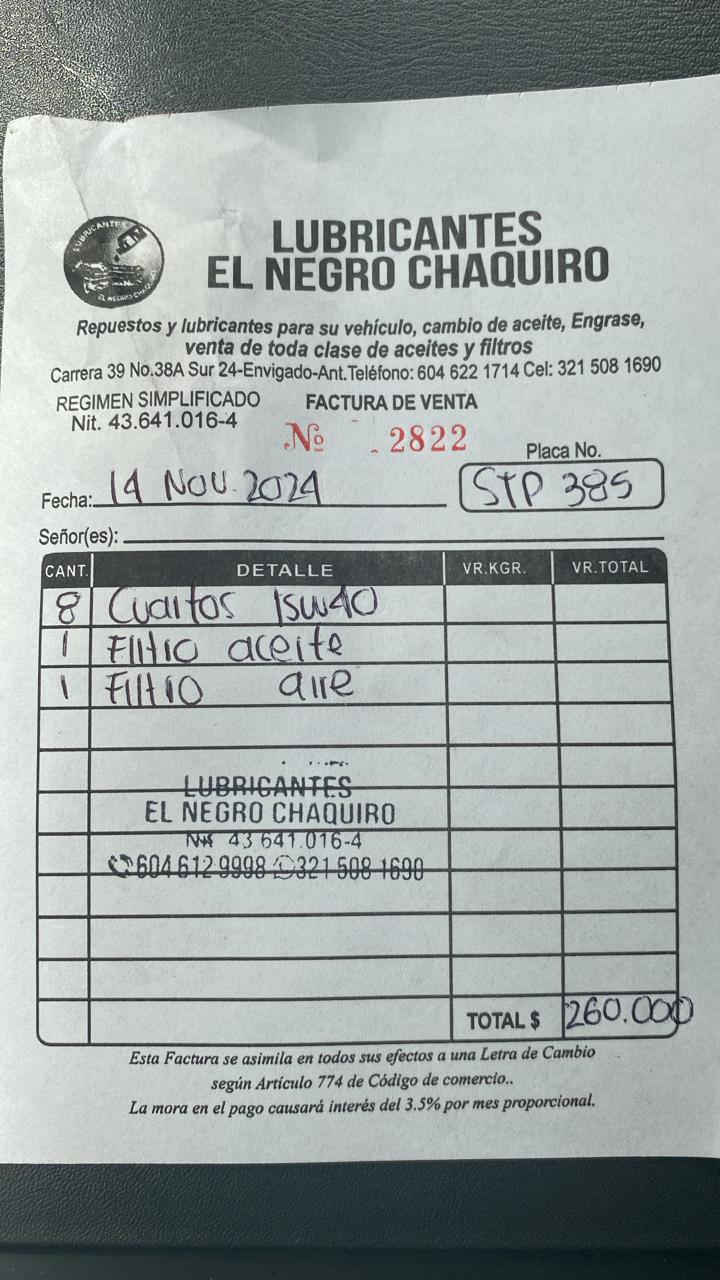 LUBRICANTES
EL NEGRO CHAQUIRO
LUBRICANTES
EL NEGRO
Repuestos y lubricantes para su vehículo, cambio de aceite, Engrase,
venta de toda clase de aceites y filtros
Carrera 39 No.38A Sur 24-Envigado-Ant.Teléfono: 604 622 1714 Cel: 321 508 1690
REGIMEN SIMPLIFICADO FACTURA DE VENTA
Nit. 43.641.016-4
Nº 2822
Placa No.
Fecha: 14 NOV. 2024 STP 385
Señor(es):
CANT. DETALLE VR.KGR. VR.TOTAL
8 Cuartos 15W40
1 Filtro aceite
1 Filtro aire
LUBRICANTES
EL NEGRO CHAQUIRO
Nit 43 641.016-4
604 612 9998 321 508 1690
TOTAL $ 260.000
Esta Factura se asimila en todos sus efectos a una Letra de Cambio
según Artículo 774 de Código de comercio..
La mora en el pago causará interés del 3.5% por mes proporcional.